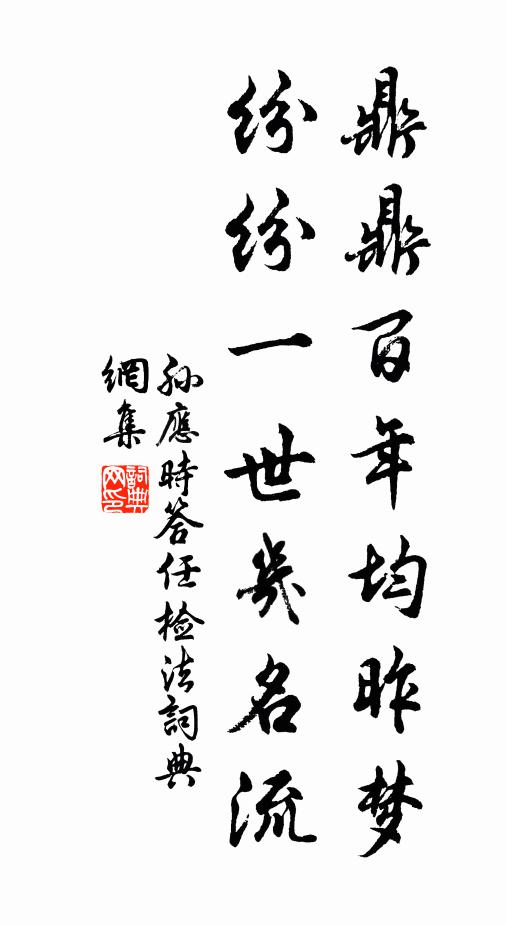 鼎鼎百年均昨梦
纷纷一世几名流
孙應時答任检法詞典
網集
詞典网印